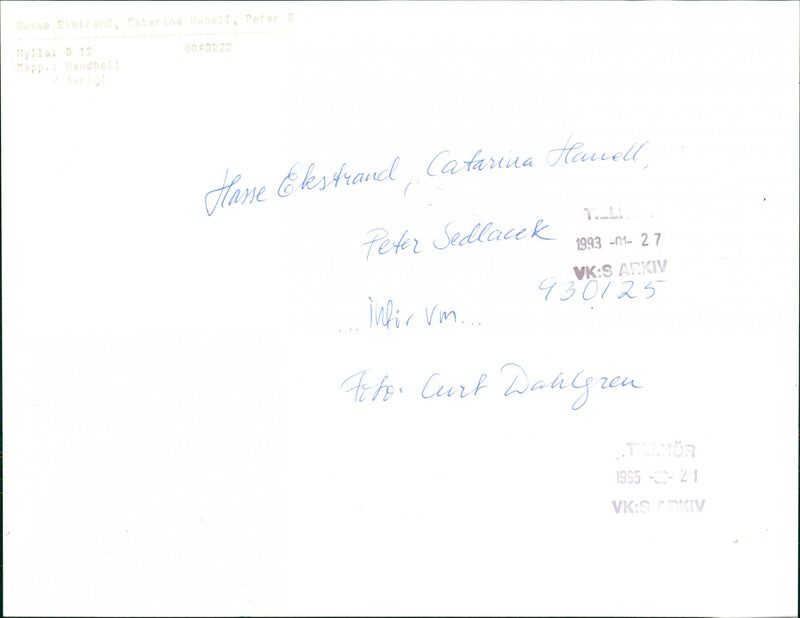 Hasse Ekstrand, Catarina Hanell, Peter S
Hylla: B 12 0048222
Mapp.: Handboll
/ Övrigt
Hasse Ekstrand, Catarina Hanell,
Peter Sedlacek
TILLHÖR
1993 -01- 27
VK:S ARKIV
930125
... Inför vm...
Foto: Curt Dahlgren
TILLHÖR
1995 - 21
VK:S ARKIV